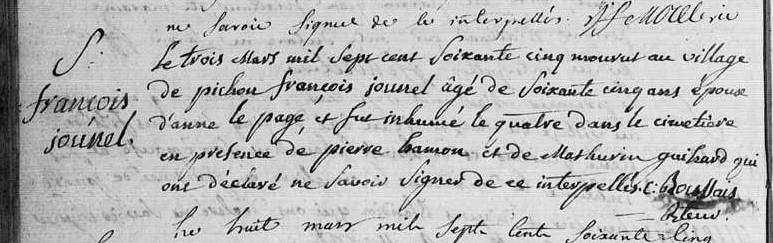 ne Savoir Signer de ce interpellés.
S.
françois
jounel.
Le trois Mars mil Sept cent Soixante cinq mourut au village
de pichon françois jounel âgé de Soixante cinq ans époux
d'anne le pagé et fut inhumé le quatre dans le cimetière
en presence de pierre hamon et de Mathurin guihard qui
ont déclaré ne Savoir Signer de ce interpellés. c: Boussais
Recteur
Le huit mars mil Sept Cent Soixante Cinq